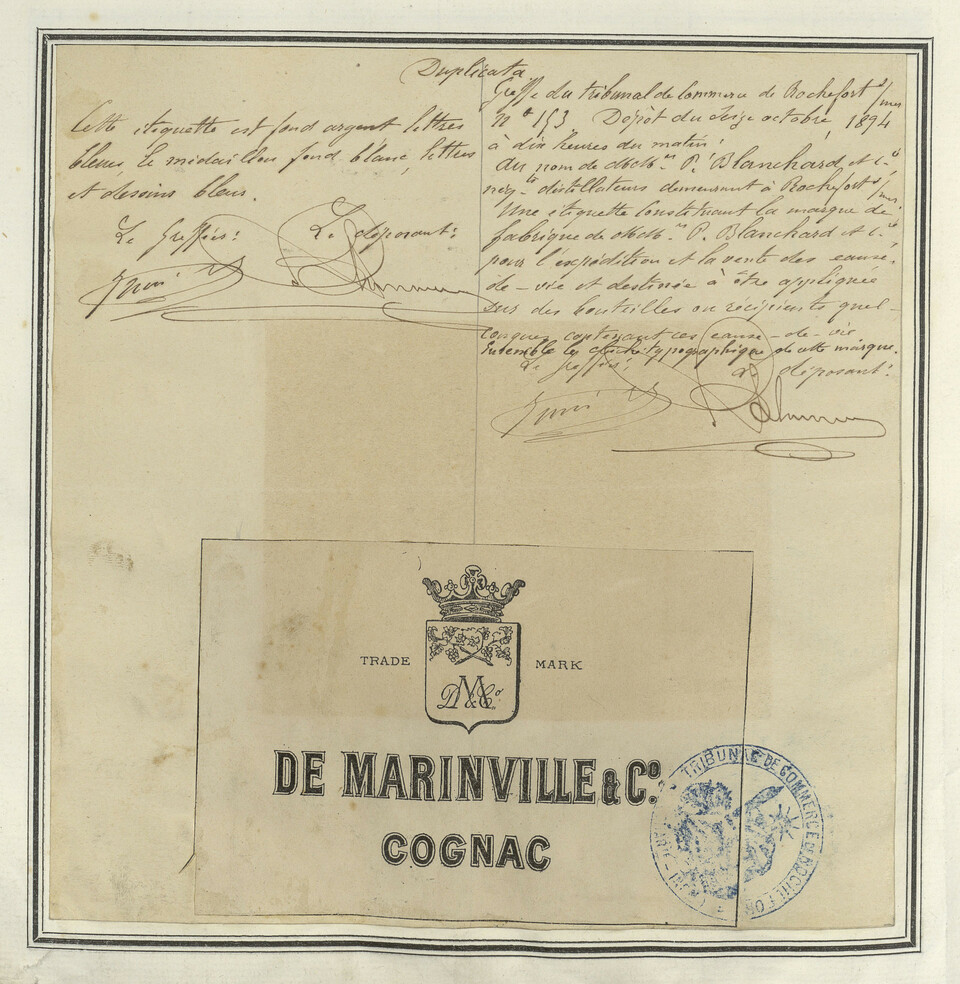 Duplicata
Cette étiquette est fond argent, lettres
bleues, le médaillon fond blanc, lettres
et dessins bleus.
Le Greffier: Le déposant:
Greffe du tribunal de Commerce de Rochefort s/mer
Nº 153 Dépôt du seize octobre, 1894
à dix heures du matin:
Au nom de MM.rs P. Blanchard et C.ie,
nég.ts distillateurs demeurant à Rochefort s/mer.
Une étiquette constituant la marque de
fabrique de MM.rs P. Blanchard et C.ie,
pour l'expédition et la vente des eaux-
de-vie et destinée à être appliquée
sur des bouteilles ou récipients quel-
conques contenant ces eaux-de-vie
Ensemble le cliché typographique de cette marque.
Le Greffier: Le déposant:
TRADE MARK
D M & Cº
DE MARINVILLE & Cº.
COGNAC
TRIBUNAL DE COMMERCE DE ROCHEFORT